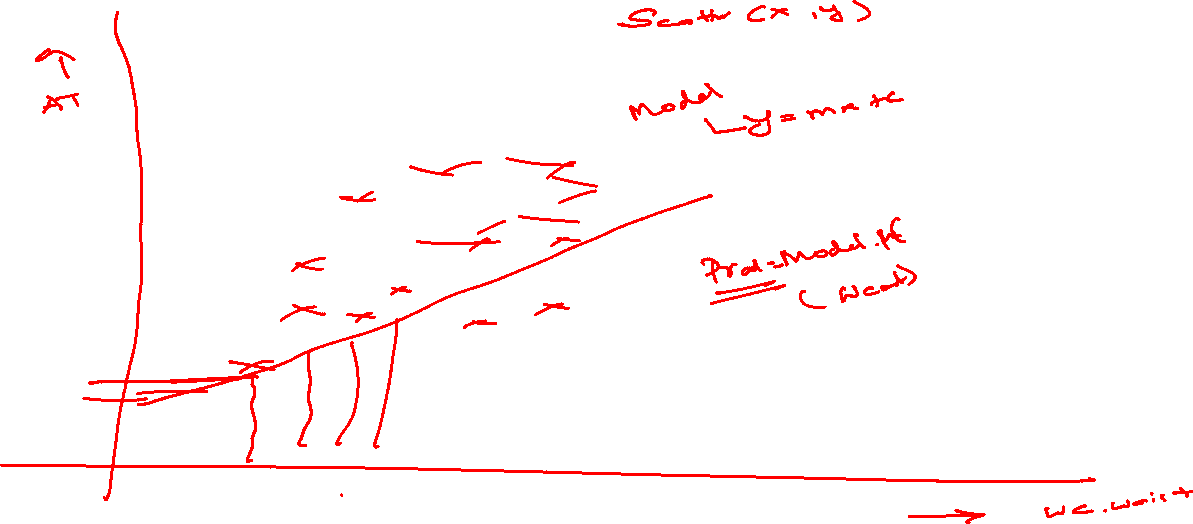 Scatter (x, y)
AT
Model
y = mx + c
Pred = Model.P
(Waist)
WC. Waist